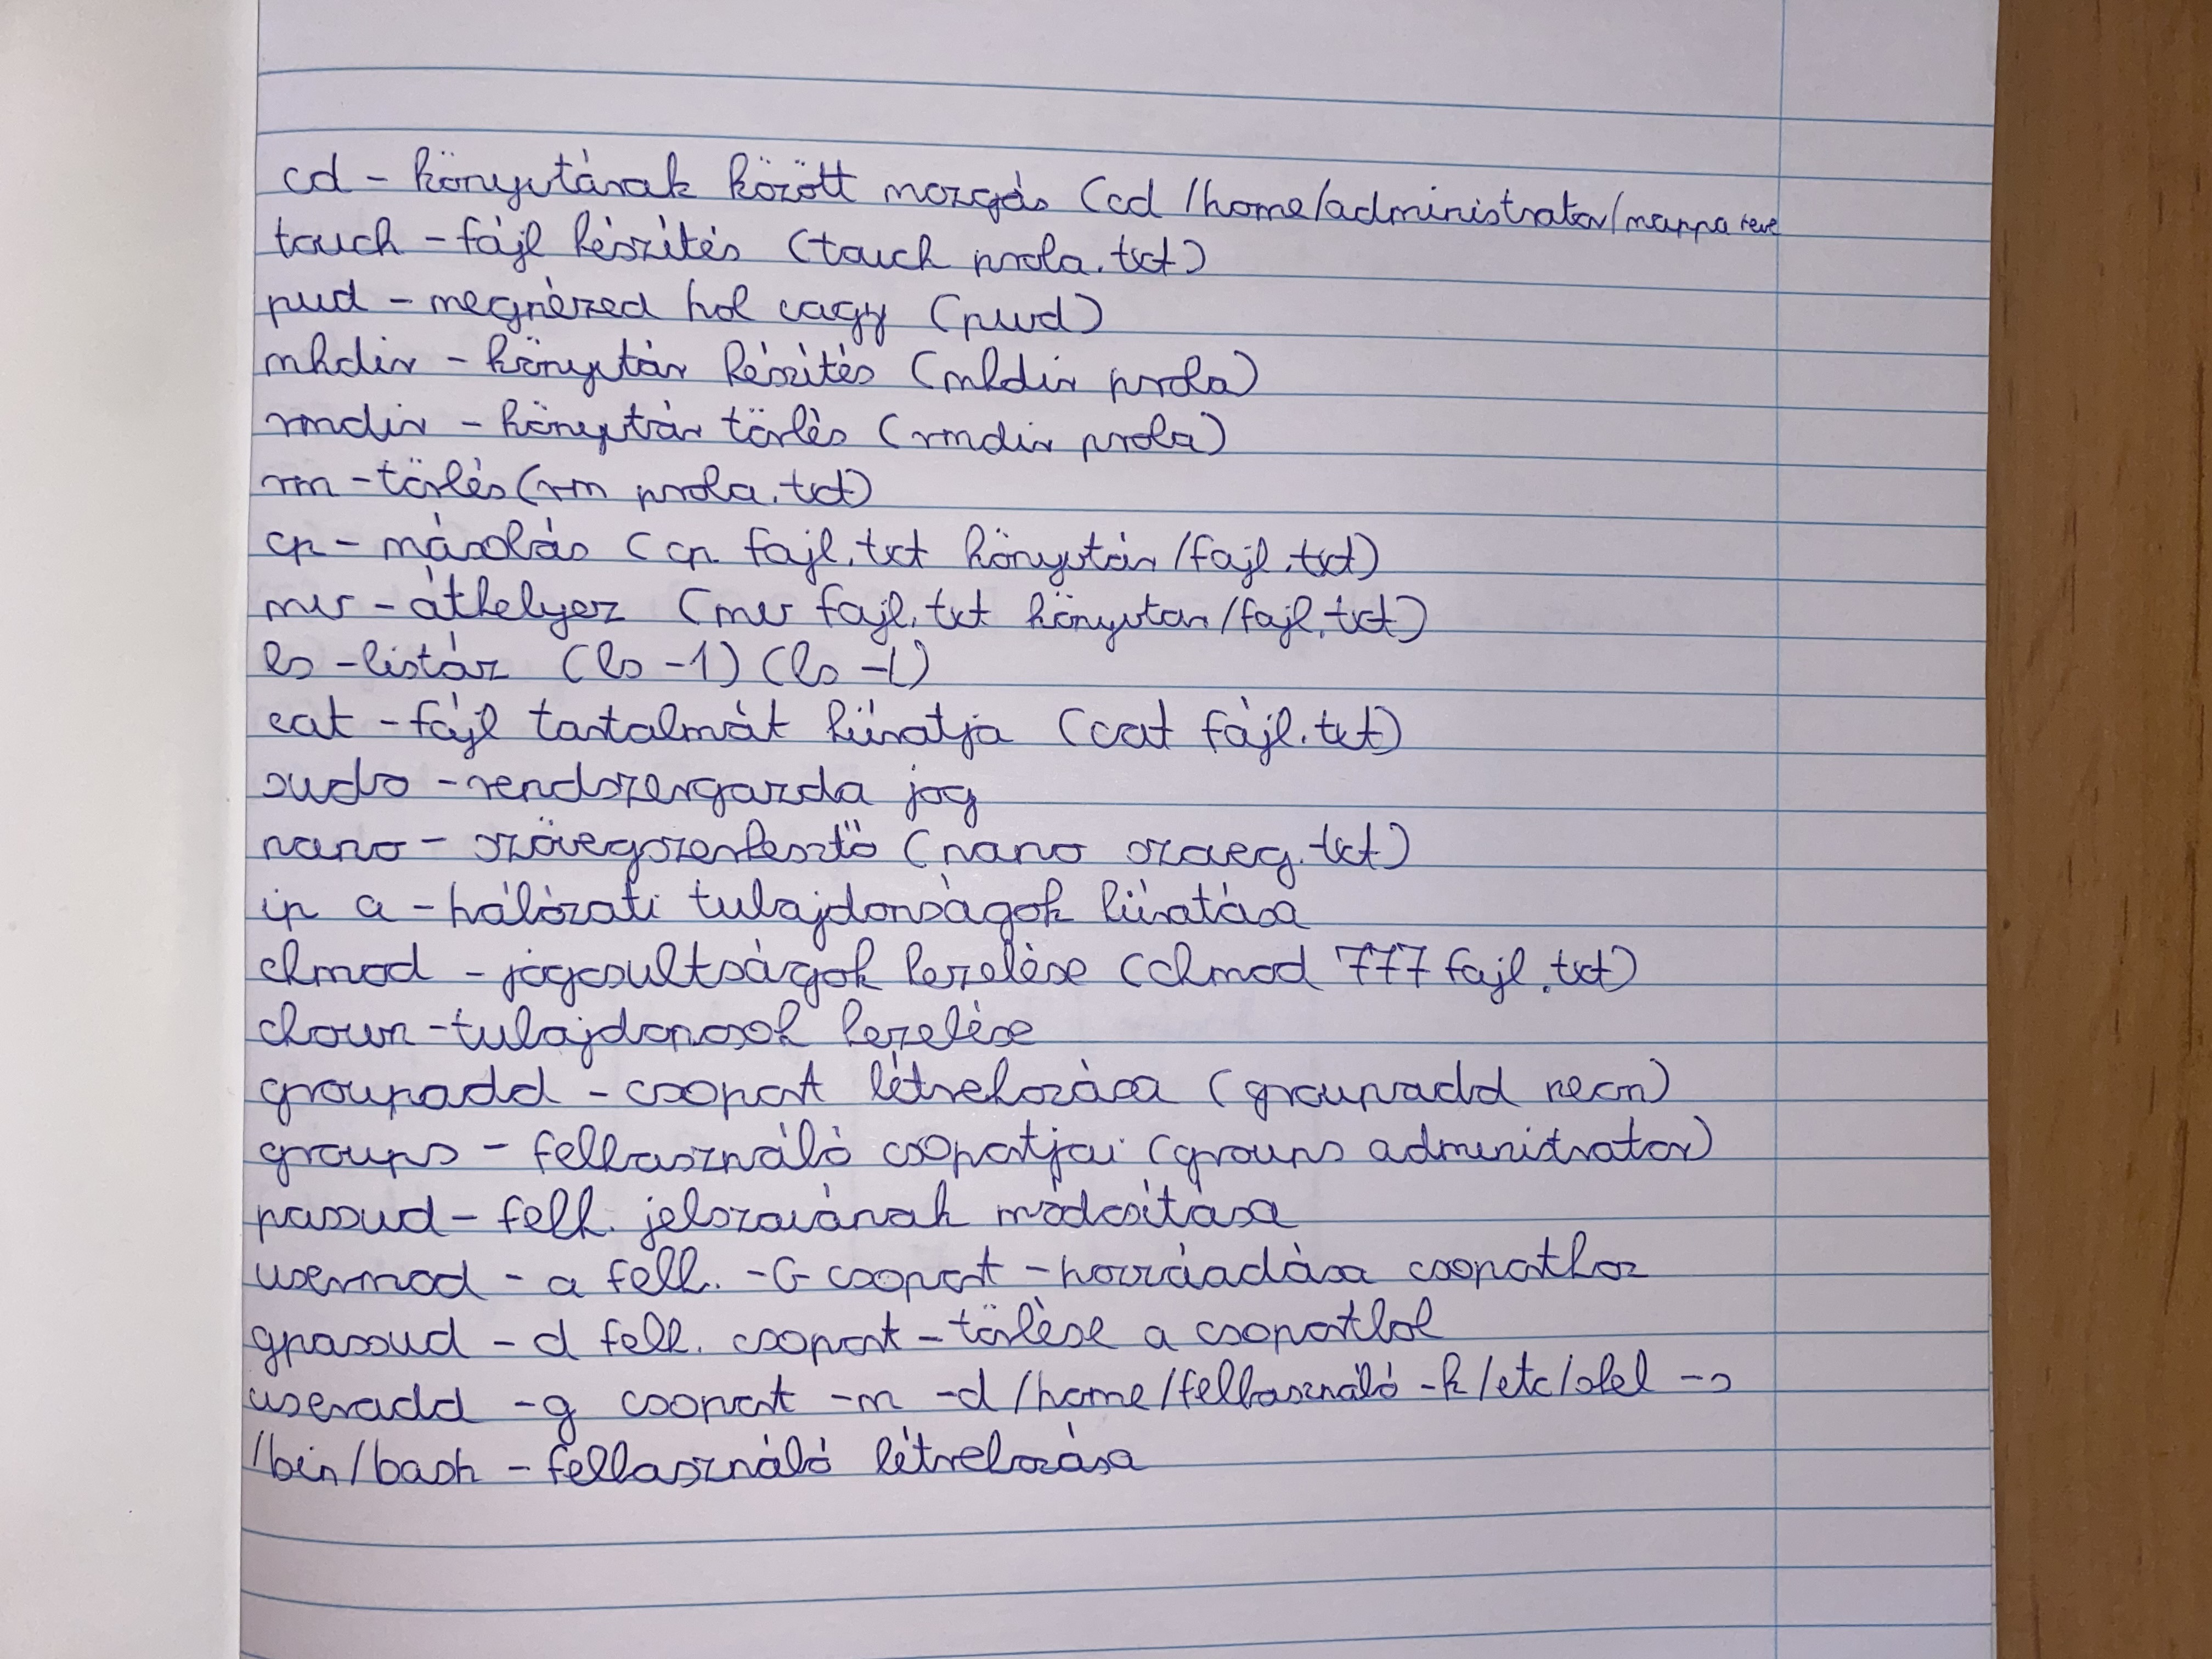 cd - könyvtárak között mozgás (cd /home/administrator/mappa neve
touch - fájl készítés (touch proba.txt)
pwd - megnézed hol vagy (pwd)
mkdir - könyvtár készítés (mkdir proba)
rmdir - könyvtár törlés (rmdir proba)
rm - törlés (rm proba.txt)
cp - másolás (cp fajl.txt könyvtár/fajl.txt)
mv - áthelyez (mv fajl.txt könyvtar/fajl.txt)
ls - listáz (ls -1) (ls -l)
cat - fájl tartalmát kiíratja (cat fájl.txt)
sudo - rendszergazda jog
nano - szövegszerkesztő (nano szoveg.txt)
ip a - hálózati tulajdonságok kiíratása
chmod - jogosultságok kezelése (chmod 777 fajl.txt)
chown - tulajdonosok kezelése
groupadd - csoport létrehozása (groupadd nem)
groups - felhasználó csoportjai (groups adminitrator)
passwd - felh. jelszavának módosítása
usermod - a felh. -G csoport - hozzáadása csoporthoz
gpasswd - d felh. csoport - törlése a csoportbol
useradd -g csoport -m -d /home/felhasználó -k /etc/skel -s
/bin/bash - felhasználó létrehozása